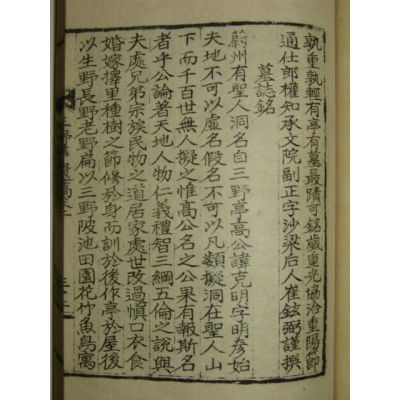 孰重孰輕有亭有墓最蹟可銘歲重光協洽重陽節
通仕郎權知承文院副正字沙梁后人崔鉉弼謹撰
墓誌銘
蔚州有聖人洞名自三野亭高公諱克明字明彦始
夫地不可以虛名假名不可以凡類擬洞在聖人山
下而千百世無人擬之惟高公名之公果有報斯名
者乎公論者天地人物仁義禮智三綱五倫之說與
夫處兄弟宗族民物之道居家處世改過慎口衣食
婚嫁擇里種樹之節修於身而訓於後作亭於屋後
以生野長野老野扁以三野陂池田園花竹魚鳥寓